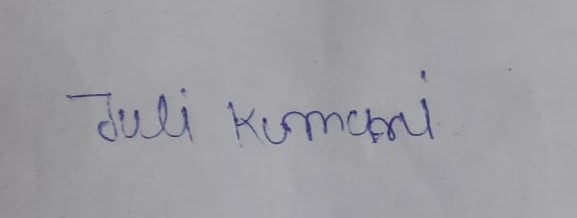 Juli Kumari